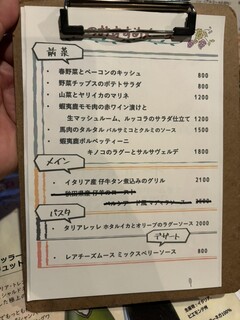 前菜
・ 春野菜とベーコンのキッシュ 800
・ 野菜チップスのポテトサラダ 800
・ 山菜とヤリイカのマリネ 1200
・ 蝦夷鹿モモ肉の赤ワイン漬けと
生マッシュルーム、ルッコラのサラダ仕立て 1200
・ 馬肉のタルタル バルサミコとクルミのソース 1500
・ 蝦夷鹿ポルペッティーニ
キノコのラグーとサルサヴェルデ 1800
メイン
・ イタリア産 仔牛タン煮込みのグリル 2100
パスタ
・ タリアレッレ ホタルイカとオリーブのラグーソース 2000
デザート
・ レアチーズムース ミックスベリーソース 800